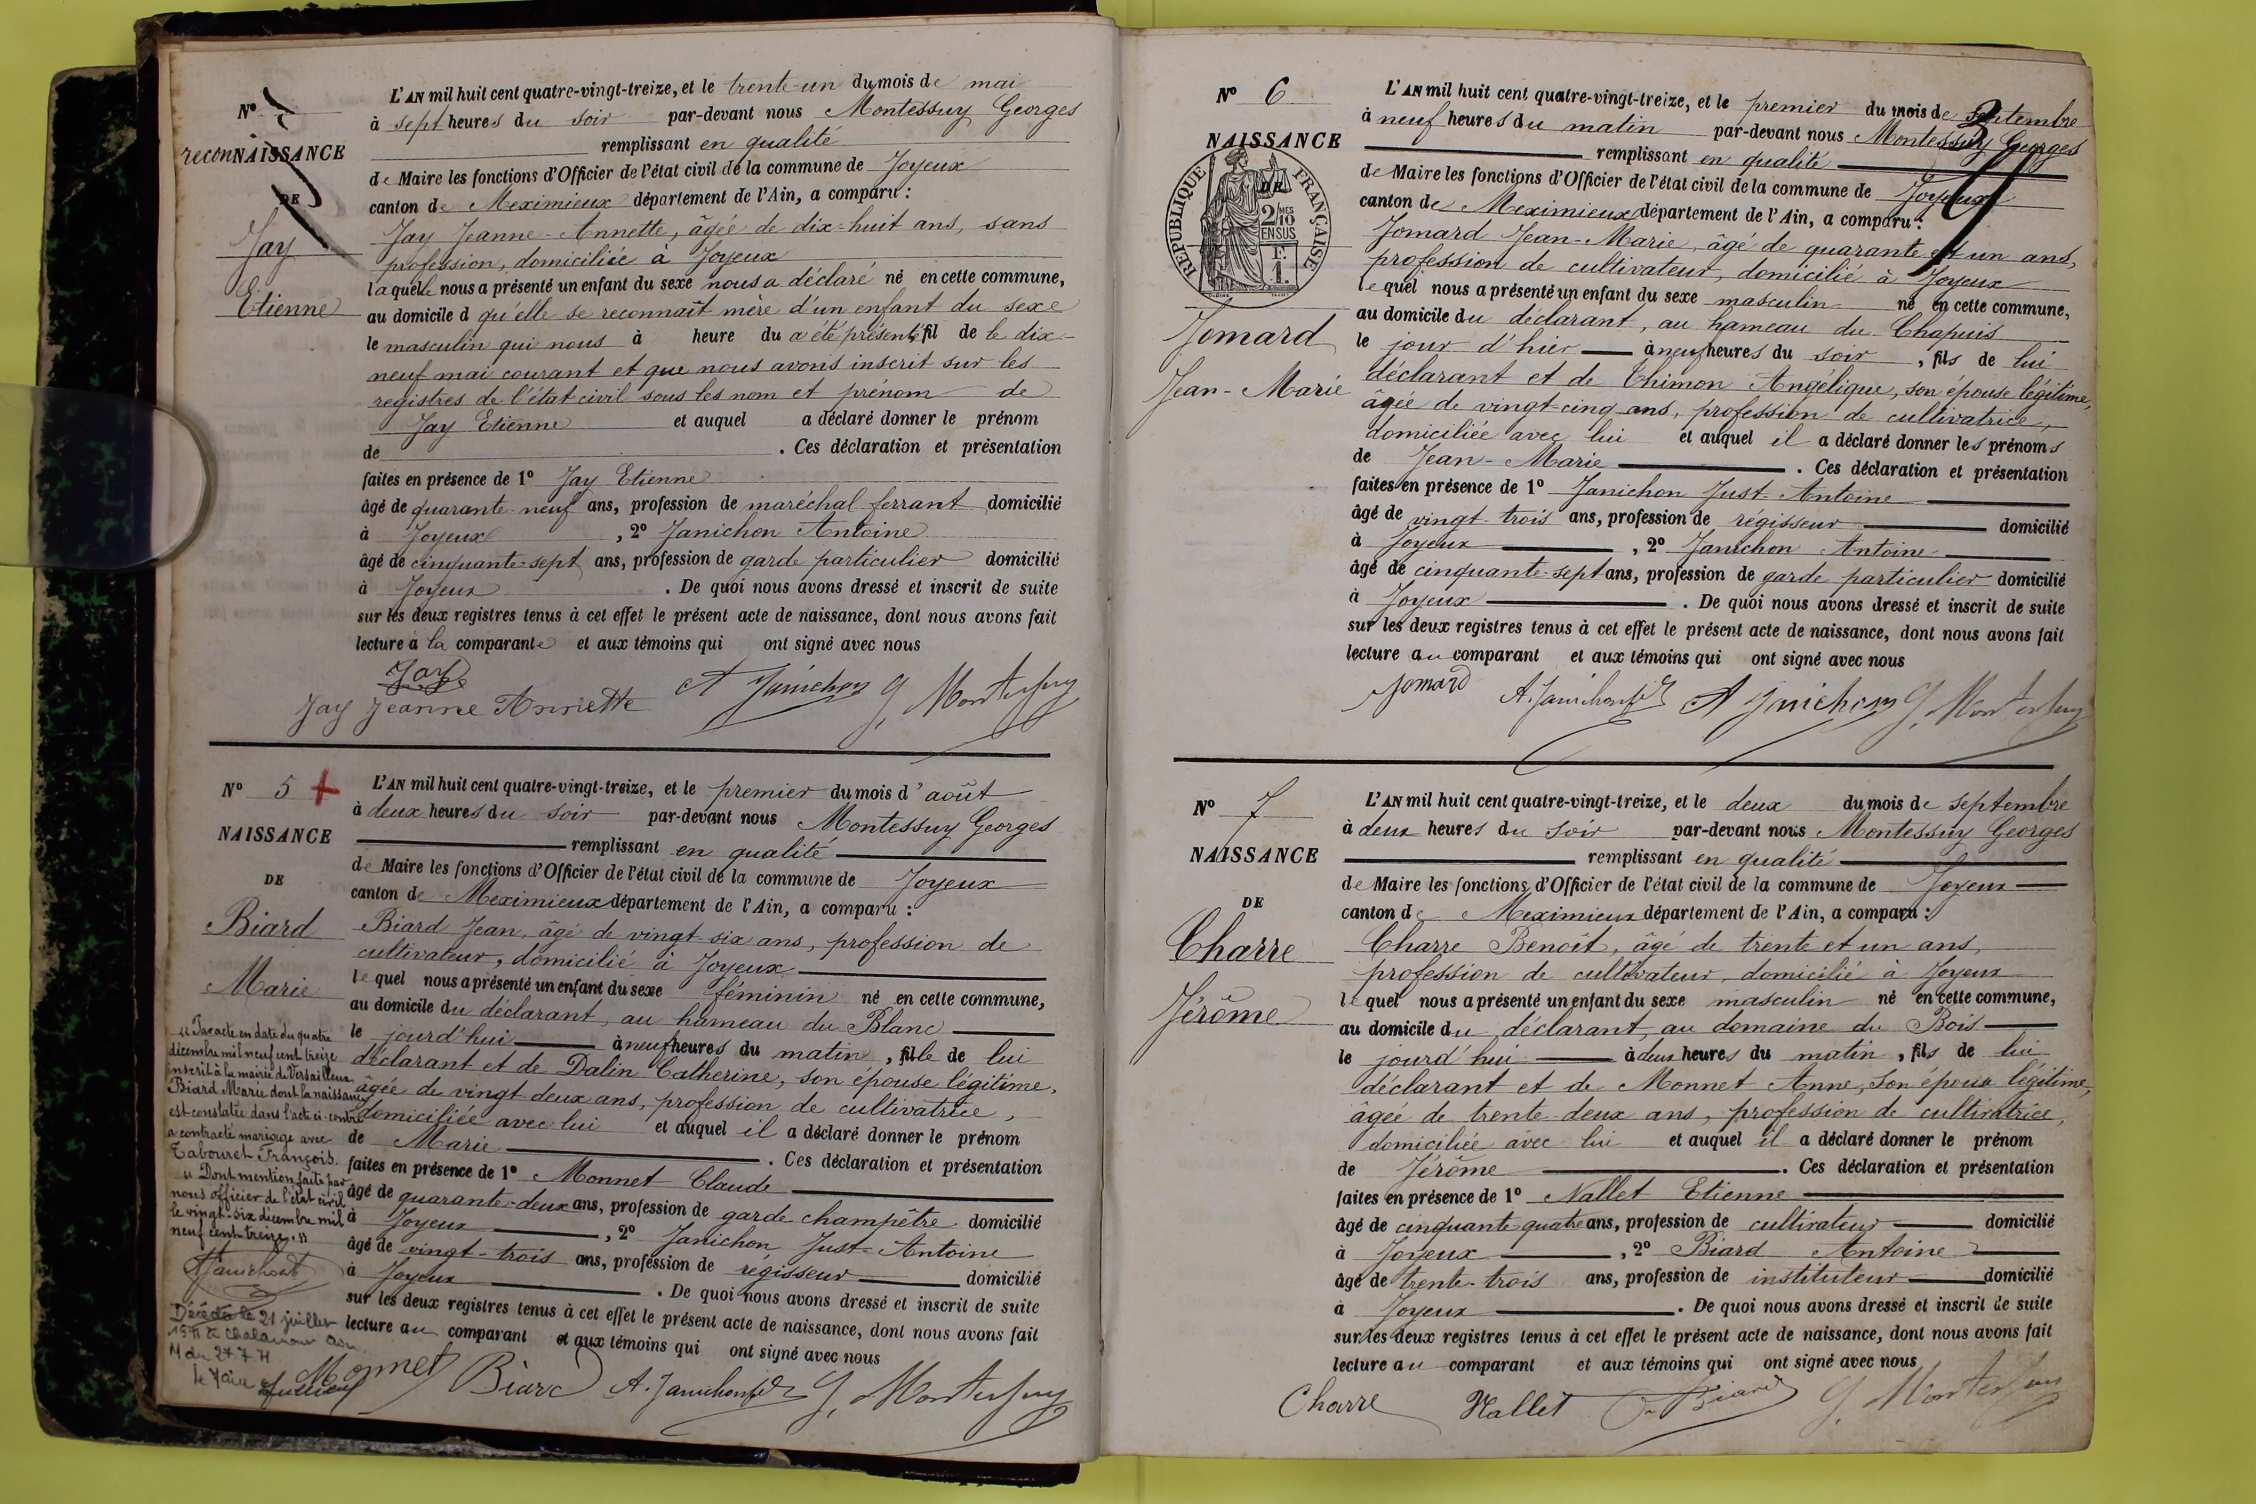 N°
reconNAISSANCE
DE
Jay
Etienne
L'AN mil huit cent quatre-vingt-treize, et le trente-un du mois de mai
à sept heures du soir par-devant nous Montessuy Georges
remplissant en qualité
de Maire les fonctions d'Officier de l'état civil de la commune de Joyeux
canton de Meximieux département de l'Ain, a comparu :
Jay Jeanne-Annette, âgée de dix-huit ans, sans
profession, domiciliée à Joyeux
laquelle nous a présenté un enfant du sexe nous a déclaré né en cette commune,
au domicile d qu'elle se reconnaît mère d'un enfant du sexe
le masculin qui nous à heure du a été présenté, fil de le dix-
neuf mai courant et que nous avons inscrit sur les
registres de l'état civil sous les nom et prénom de
Jay Etienne et auquel a déclaré donner le prénom
de . Ces déclaration et présentation
faites en présence de 1° Jay Etienne
âgé de quarante-neuf ans, profession de maréchal ferrant domicilié
à Joyeux , 2° Janichon Antoine
âgé de cinquante-sept ans, profession de garde particulier domicilié
à Joyeux . De quoi nous avons dressé et inscrit de suite
sur les deux registres tenus à cet effet le présent acte de naissance, dont nous avons fait
lecture à la comparante et aux témoins qui ont signé avec nous
Jay
Jay Jeanne Annette A Janichon G. Montessuy
N° 5 +
NAISSANCE
DE
Biard
Marie
L'AN mil huit cent quatre-vingt-treize, et le premier du mois d'août
à deux heures du soir par-devant nous Montessuy Georges
remplissant en qualité
de Maire les fonctions d'Officier de l'état civil de la commune de Joyeux
canton de Meximieux département de l'Ain, a comparu :
Biard Jean, âgé de vingt-six ans, profession de
cultivateur, domicilié à Joyeux
lequel nous a présenté un enfant du sexe féminin né en cette commune,
au domicile du déclarant, au hameau du Blanc
le jourd'hui à neuf heures du matin, fille de lui
déclarant et de Dalin Catherine, son épouse légitime,
âgée de vingt-deux ans, profession de cultivatrice,
domiciliée avec lui et auquel il a déclaré donner le prénom
de Marie . Ces déclaration et présentation
faites en présence de 1° Monnet Claude
âgé de quarante-deux ans, profession de garde champêtre domicilié
à Joyeux , 2° Janichon Just-Antoine
âgé de vingt-trois ans, profession de régisseur domicilié
à Joyeux . De quoi nous avons dressé et inscrit de suite
sur les deux registres tenus à cet effet le présent acte de naissance, dont nous avons fait
lecture au comparant et aux témoins qui ont signé avec nous
Monnet Biard A. Janichon fils G. Montessuy
"Par acte en date du quatre
décembre mil neuf cent treize
inscrit à la mairie de Versailleux
Biard Marie dont la naissance
est constatée dans l'acte ci-contre
a contracté mariage avec
Tabouret François.
" Dont mention faite par
nous officier de l'état civil
le vingt-six décembre mil
neuf cent treize."
Janichon
Décédée le 21 juillet
le Maire
N° 6
NAISSANCE
DE
RÉPUBLIQUE FRANÇAISE
2/10 MES
EN SUS
Jomard
Jean-Marie
L'AN mil huit cent quatre-vingt-treize, et le premier du mois de septembre
à neuf heures du matin par-devant nous Montessuy Georges
remplissant en qualité
de Maire les fonctions d'Officier de l'état civil de la commune de Joyeux
canton de Meximieux département de l'Ain, a comparu :
Jomard Jean-Marie, âgé de quarante et un ans,
profession de cultivateur, domicilié à Joyeux
lequel nous a présenté un enfant du sexe masculin né en cette commune,
au domicile du déclarant, au hameau du Chapuis
le jour d'hier à neuf heures du soir, fils de lui
déclarant et de Thimon Angélique, son épouse légitime,
âgée de vingt-cinq ans, profession de cultivatrice,
domiciliée avec lui et auquel il a déclaré donner les prénoms
de Jean-Marie . Ces déclaration et présentation
faites en présence de 1° Janichon Just-Antoine
âgé de vingt-trois ans, profession de régisseur domicilié
à Joyeux , 2° Janichon Antoine
âgé de cinquante-sept ans, profession de garde particulier domicilié
à Joyeux . De quoi nous avons dressé et inscrit de suite
sur les deux registres tenus à cet effet le présent acte de naissance, dont nous avons fait
lecture au comparant et aux témoins qui ont signé avec nous
Jomard A. Janichon fils A Janichon G. Montessuy
N° 7
NAISSANCE
DE
Charre
Jérôme
L'AN mil huit cent quatre-vingt-treize, et le deux du mois de septembre
à deux heures du soir par-devant nous Montessuy Georges
remplissant en qualité
de Maire les fonctions d'Officier de l'état civil de la commune de Joyeux
canton de Meximieux département de l'Ain, a comparu :
Charre Benoît, âgé de trente et un ans,
profession de cultivateur, domicilié à Joyeux
lequel nous a présenté un enfant du sexe masculin né en cette commune,
au domicile du déclarant, au domaine du Bois
le jourd'hui à deux heures du matin, fils de lui
déclarant et de Monnet Anne, son épouse légitime,
âgée de trente-deux ans, profession de cultivatrice,
domiciliée avec lui et auquel il a déclaré donner le prénom
de Jérôme . Ces déclaration et présentation
faites en présence de 1° Nallet Etienne
âgé de cinquante-quatre ans, profession de cultivateur domicilié
à Joyeux , 2° Biard Antoine
âgé de trente-trois ans, profession de instituteur domicilié
à Joyeux . De quoi nous avons dressé et inscrit de suite
sur les deux registres tenus à cet effet le présent acte de naissance, dont nous avons fait
lecture au comparant et aux témoins qui ont signé avec nous
Charre Nallet Biard G. Montessuy